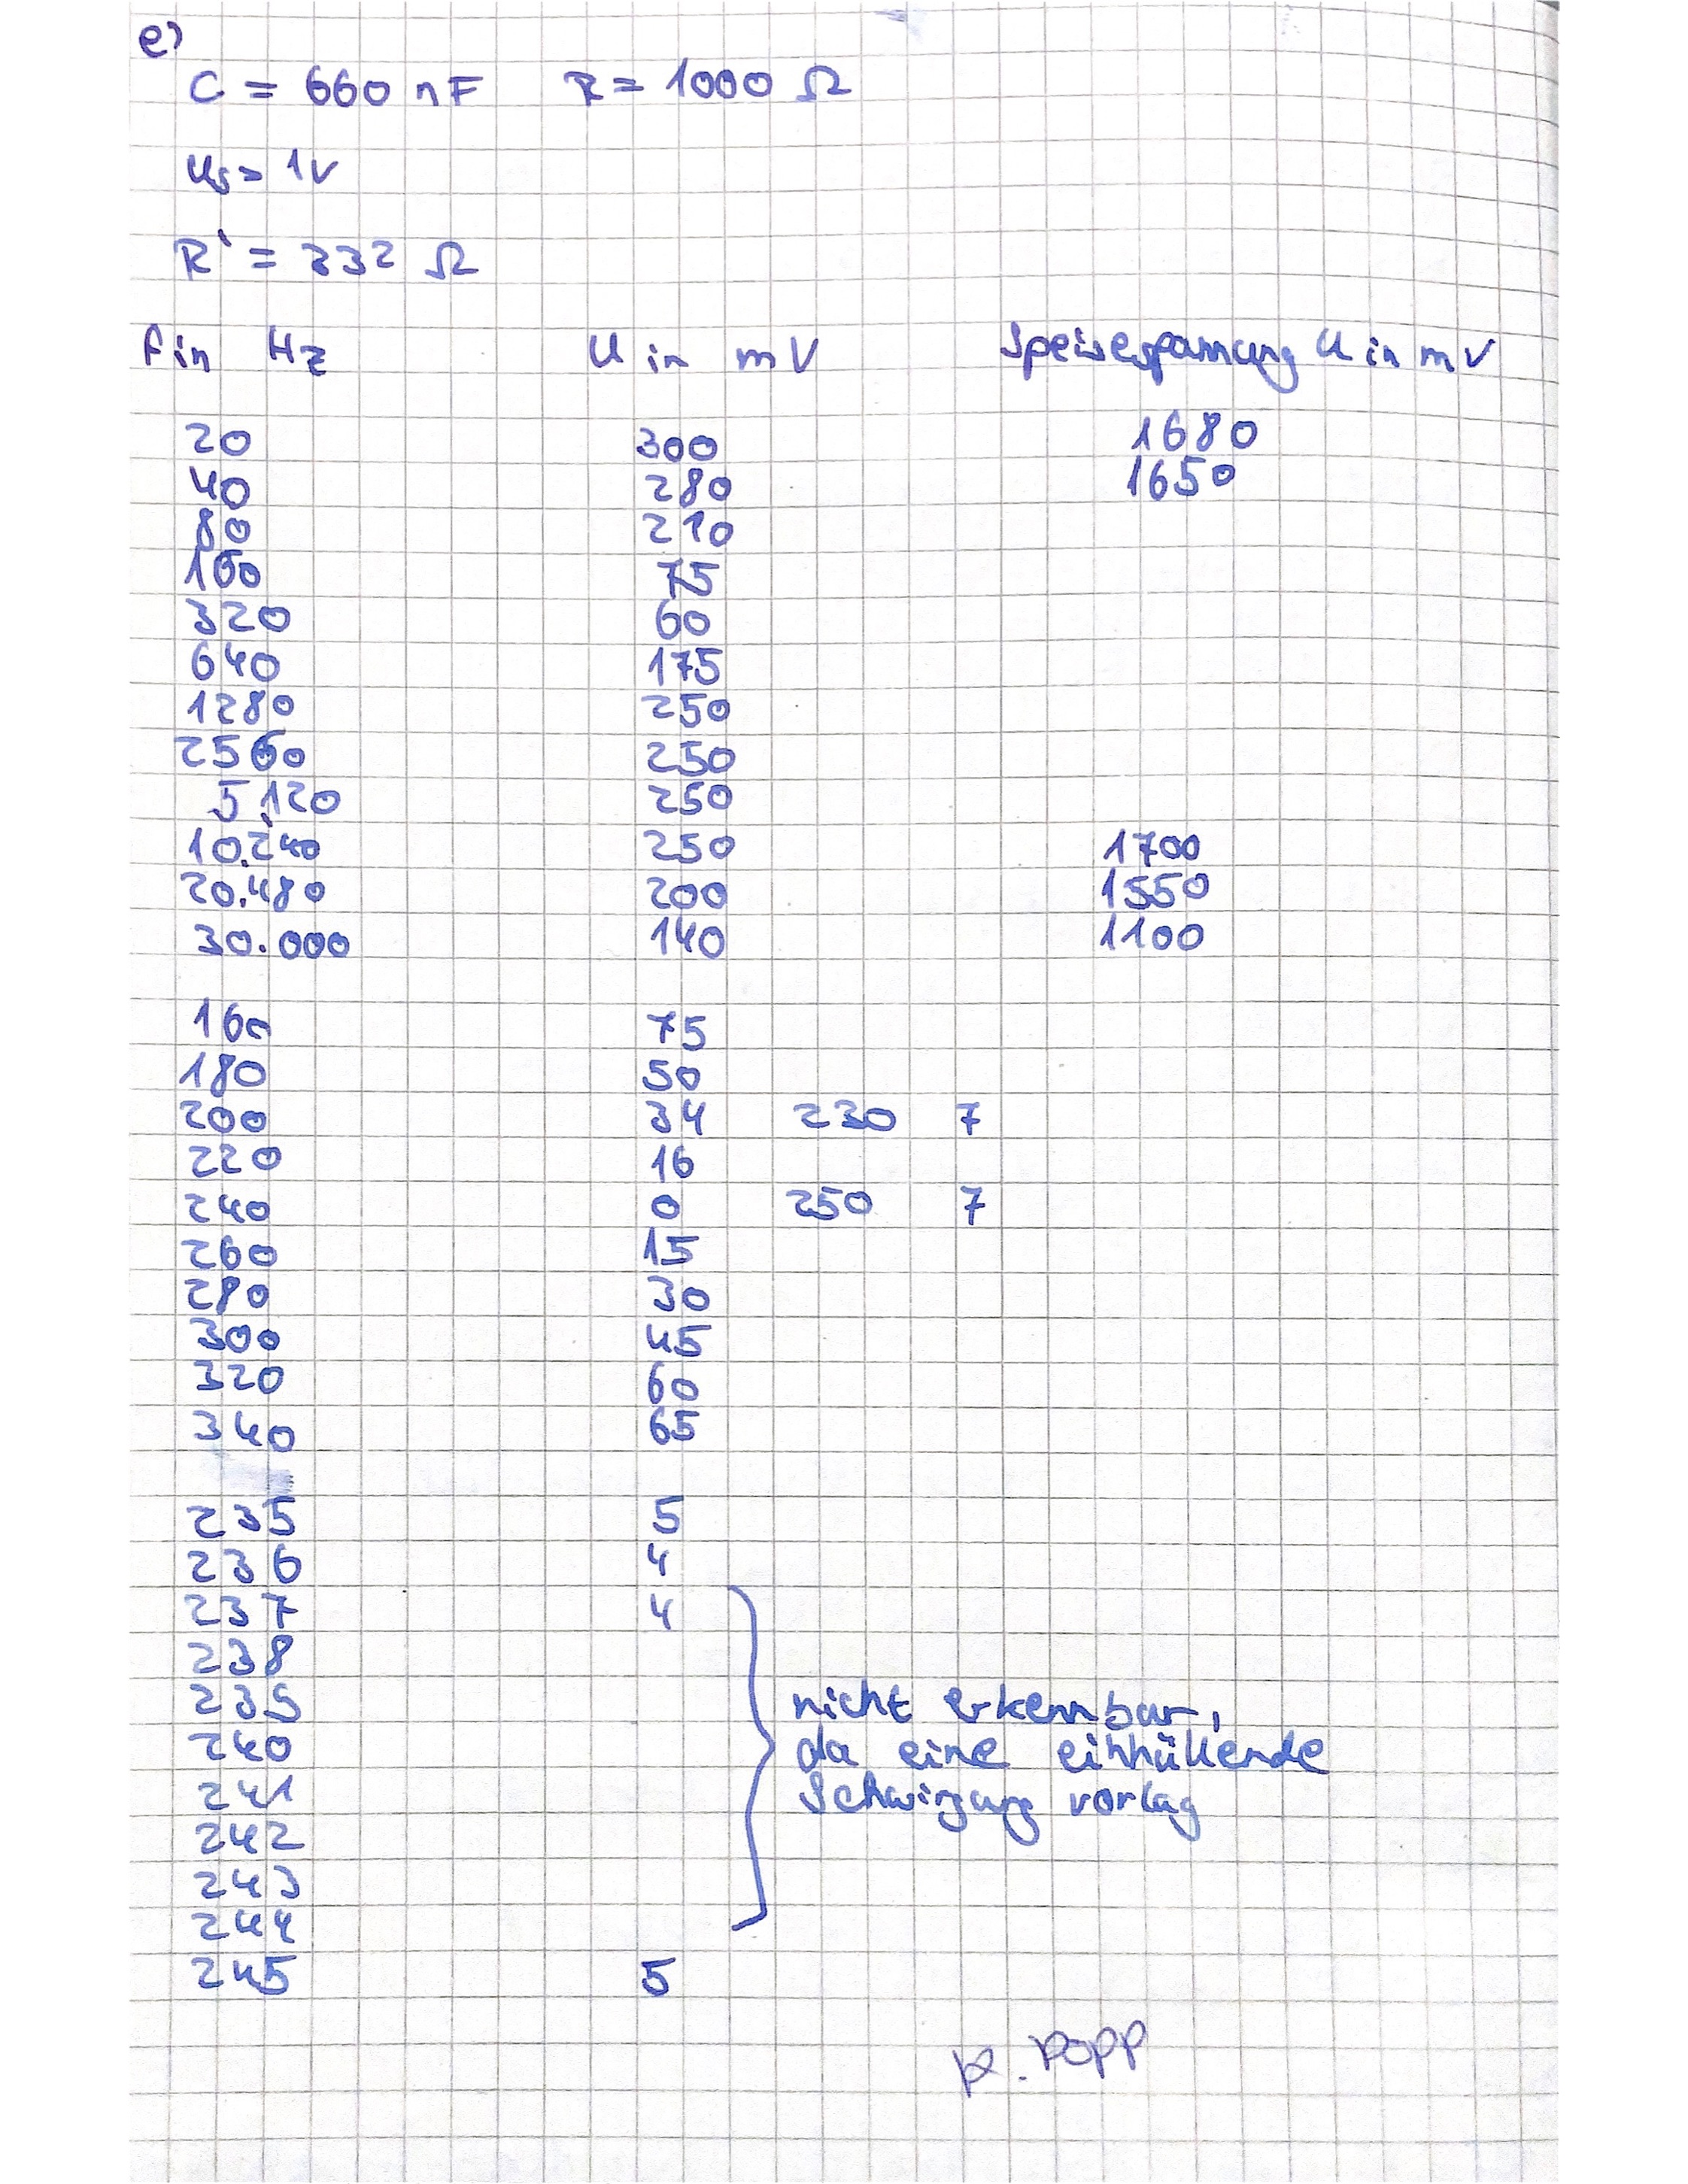 e)
C = 660 nF R = 1000 Ω
Us = 1V
R' = 332 Ω
f in Hz U in mV Speisespannung U in mV
20 300 1680
40 280 1650
80 210
160 75
320 60
640 175
1280 250
2560 250
5.120 250
10.240 250 1700
20.480 200 1550
30.000 140 1100
160 75
180 50
200 34 230 7
220 16
240 0 250 7
260 15
280 30
300 45
320 60
340 65
235 5
236 4
237 4
238
239 nicht erkennbar,
240 da eine einhüllende
241 Schwingung vorlag
242
243
244
245 5
K. Popp